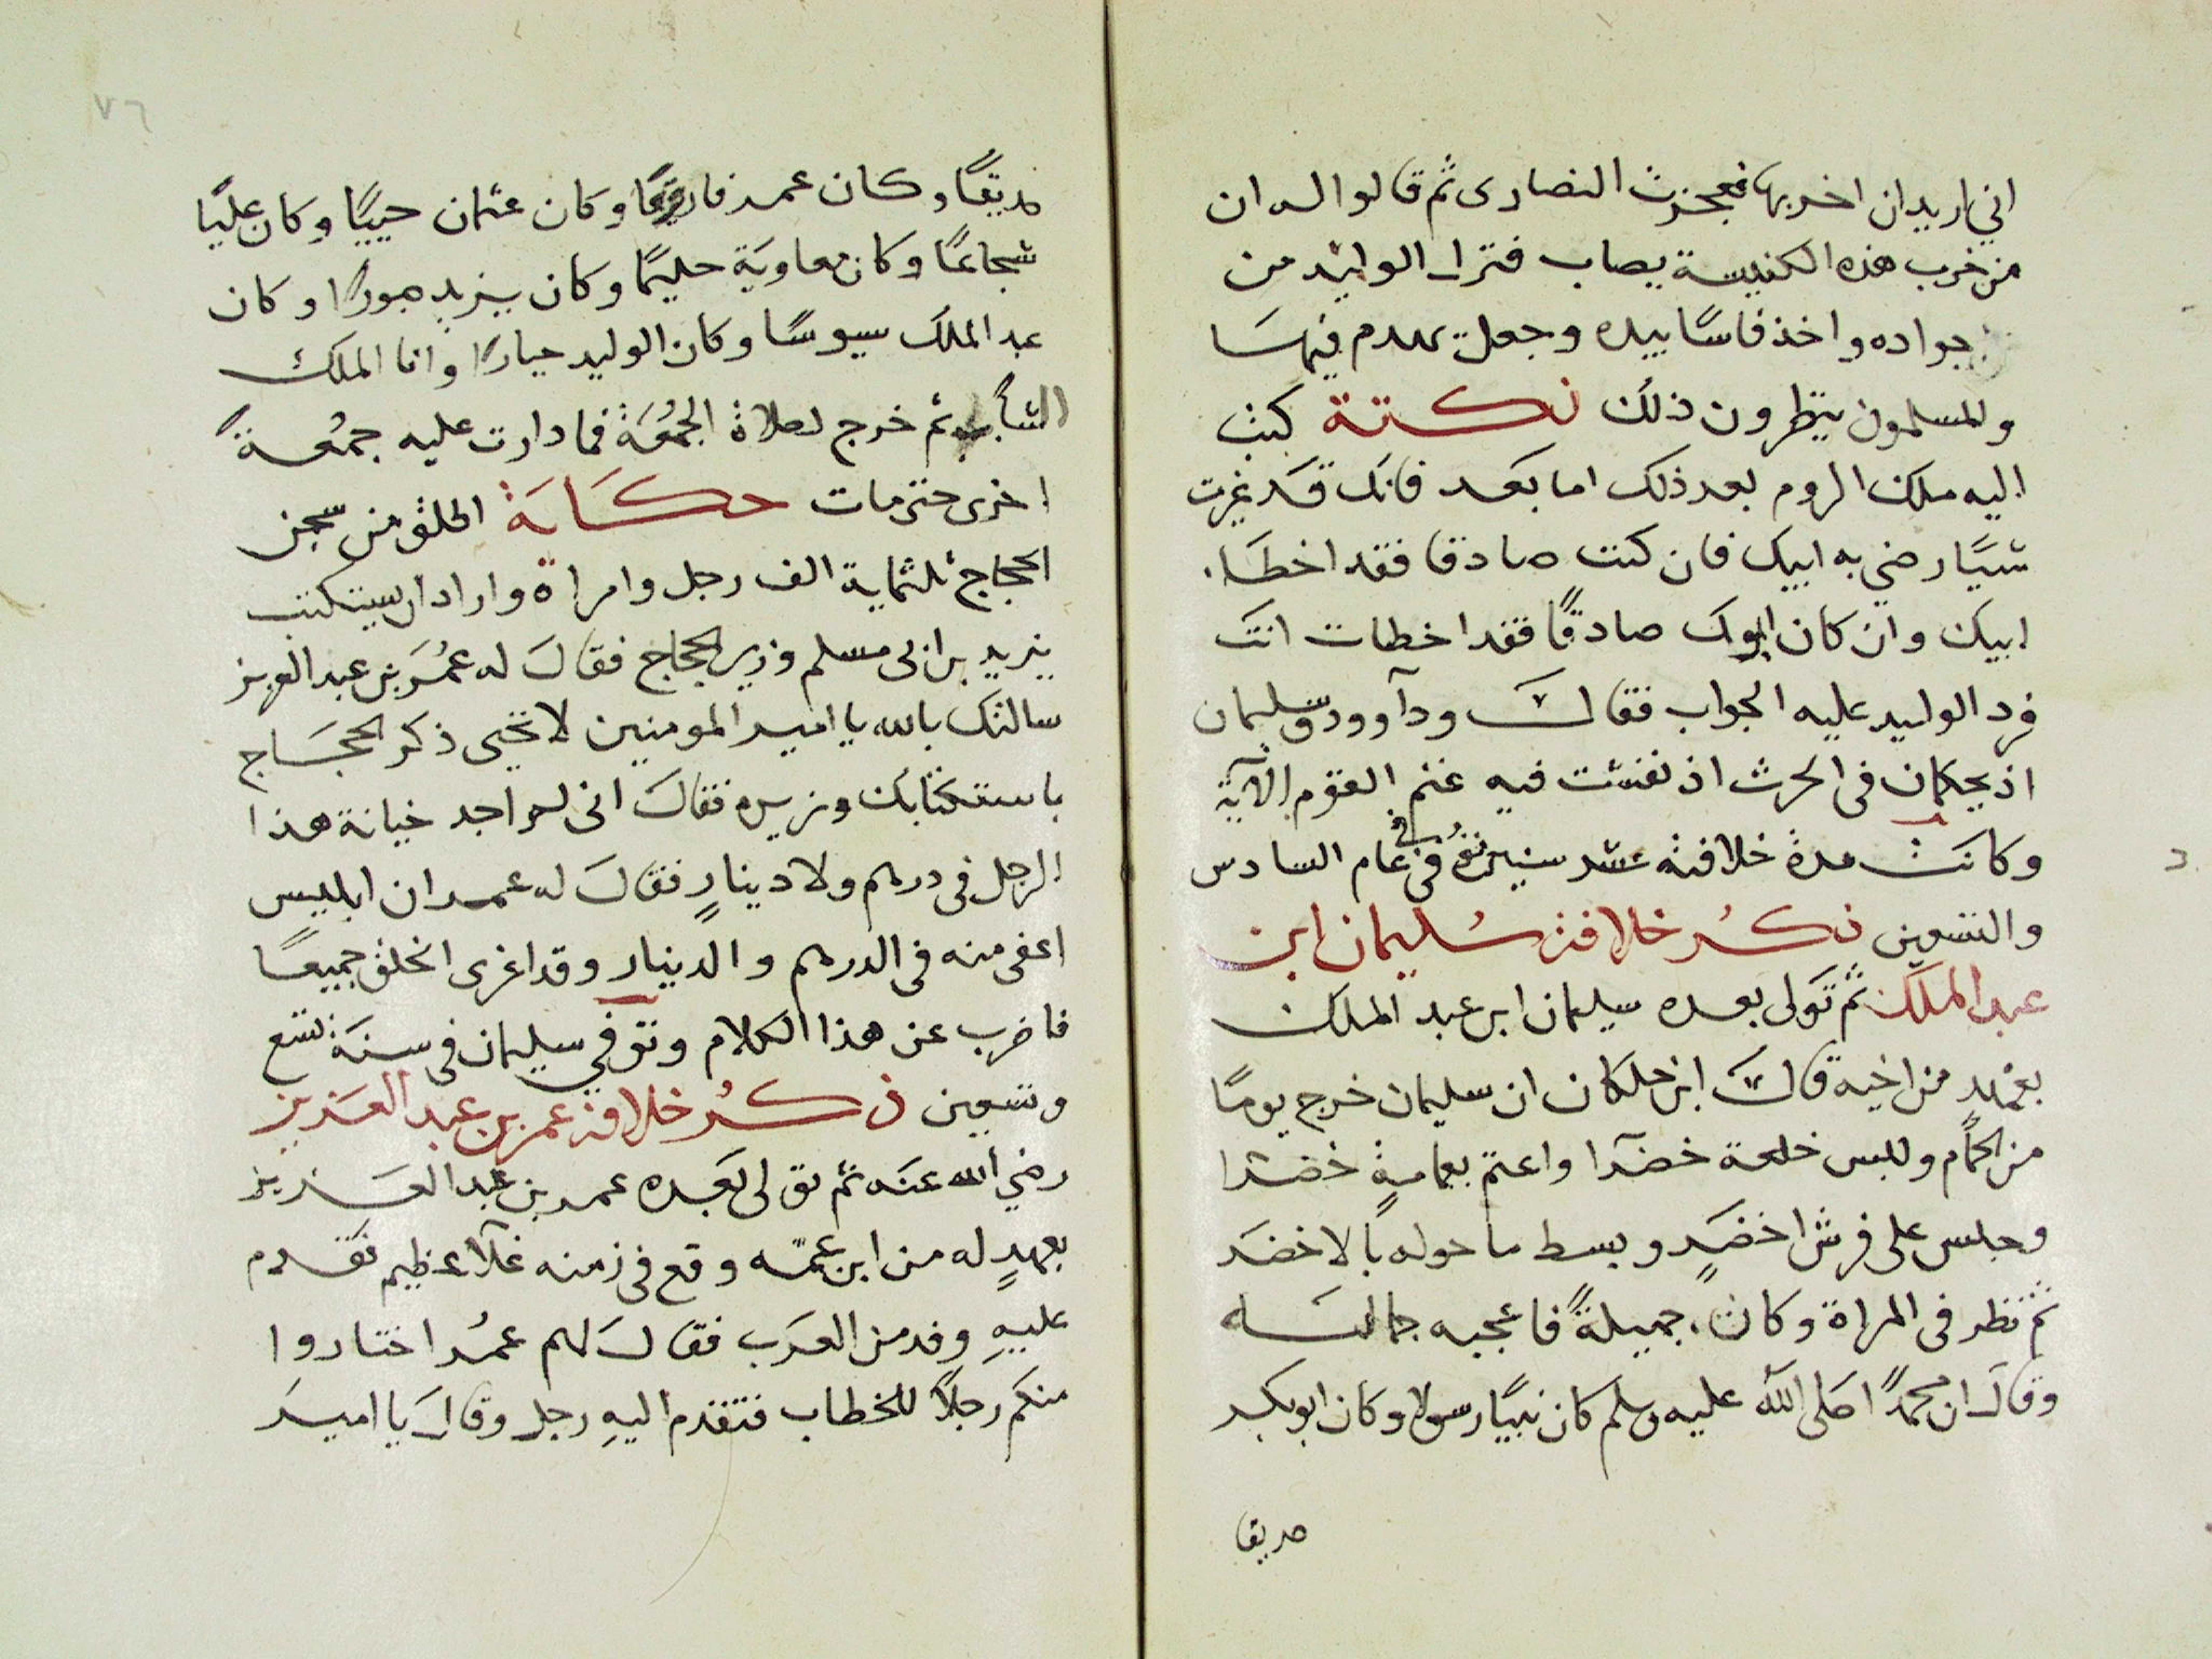 اني اريد ان اخربها فعجزت النصارى ثم قالوا له ان
من خرب هذه الكنيسة يصاب فنزل الوليد من
جواده واخذ فاسًا بيده وجعل يهدم فيها
والمسلمون ينظرون ذلك نكتة كتب
اليه ملك الروم بعد ذلك اما بعد فانك قد غيرت
شيًا رضي به ابيك فان كنت صادقا فقد اخطا
ابيك وان كان ابوك صادقًا فقد اخطات انت
فرد الوليد عليه الجواب فقال وداوود وسليمان
اذ يحكمان فى الحرث اذ نفشت فيه غنم القوم الآية
وكانت مدة خلافته عشر سنين توفي في عام السادس
والتسعين ذكر خلافة سليمان ابن
عبد الملك ثم تولى بعده سليمان ابن عبد الملك
بعهد من اخيه قال ابن خلكان ان سليمان خرج يومًا
من الحمام ولبس خلعة خضرا واعتم بعمامةٍ خضرا
وجلس على فرش اخضرٍ وبسط ما حوله بالاخضر
ثم نظر فى المراة وكان جميلةً فاعجبه جماله
وقال ان محمدًا صلى الله عليه وسلم كان نبيًا رسولا وكان ابو بكر
صديقا
٧٦
صديقًا وكان عمر فاروقًا وكان عثمان حييًا وكان عليًا
شجاعًا وكان معاوية حليمًا وكان يزيد صبورًا وكان
عبد الملك سيوسًا وكان الوليد جبارًا وانا الملك
الشاب ثم خرج لصلاة الجمعة فما دارت عليه جمعةً
اخرى حتى مات حكاية اطلق من سجن
الحجاج ثلثماية الف رجل وامراة واراد ان يستكتب
يزيد بن ابى مسلم وزير الحجاج فقال له عمر بن عبد العزيز
سالتك بالله يا امير المومنين لا تحيى ذكر الحجاج
باستكتابك وزيره فقال انى لم اجد خيانة هذا
الرجل فى درهم ولا دينارٍ فقال له عمر ان ابليس
اعفى منه فى الدرهم والدينار وقد اغرى الخلق جميعًا
فاضرب عن هذا الكلام وتوفي سليمان فى سنة تسع
وتسعين ذكر خلافة عمر بن عبد العزيز
رضي الله عنه ثم تولى بعده عمر بن عبد العزيز
بعهدٍ له من ابن عمه وقع فى زمنه غلآ عظيم فقدم
عليهِ وفد من العرب فقال لهم عمر اختاروا
منكم رجلًا للخطاب فتقدم اليهِ رجل وقال يا امير